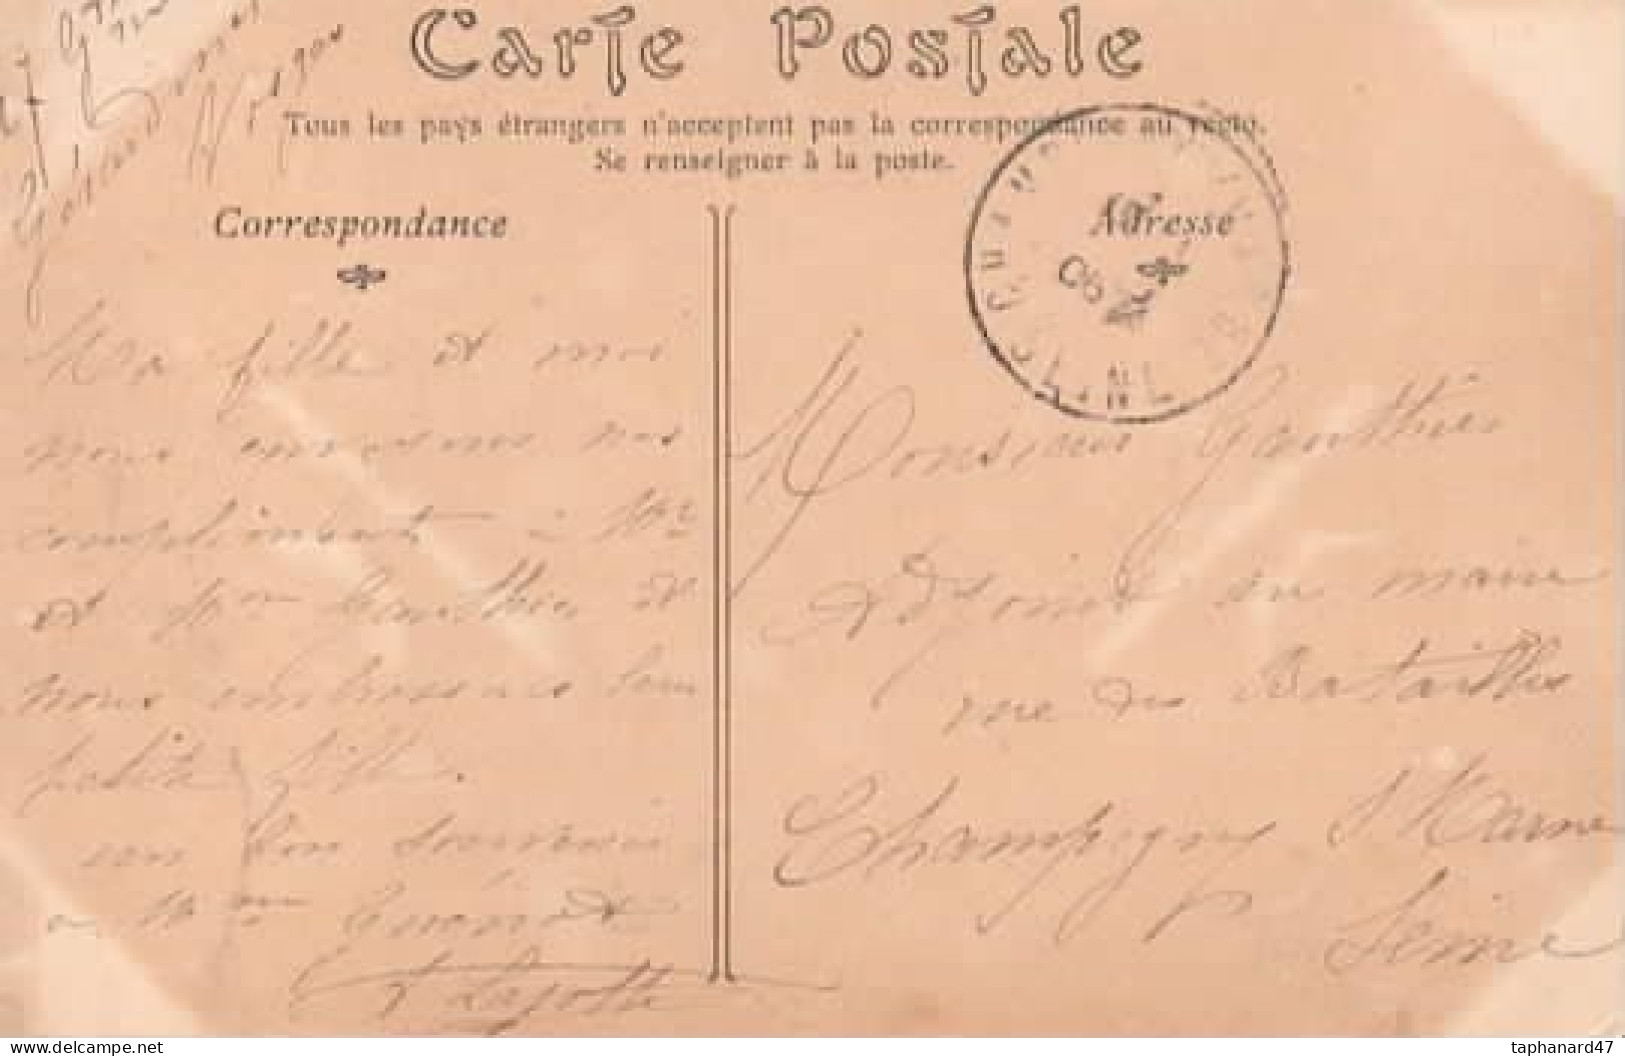 Carte Postale
Tous les pays étrangers n'acceptent pas la correspondance au recto.
Se renseigner à la poste.
Correspondance
Adresse
Ma fille et moi
nous envoyons nos
compliments à Mr
et Mme Gauthier et
nous embrassons leur
petite fille.
un bon souvenir
a Mme
Monsieur Gauthier
Adjoint au maire
rue des Batailles
Champigny s/ Marne
Seine
taphanard47